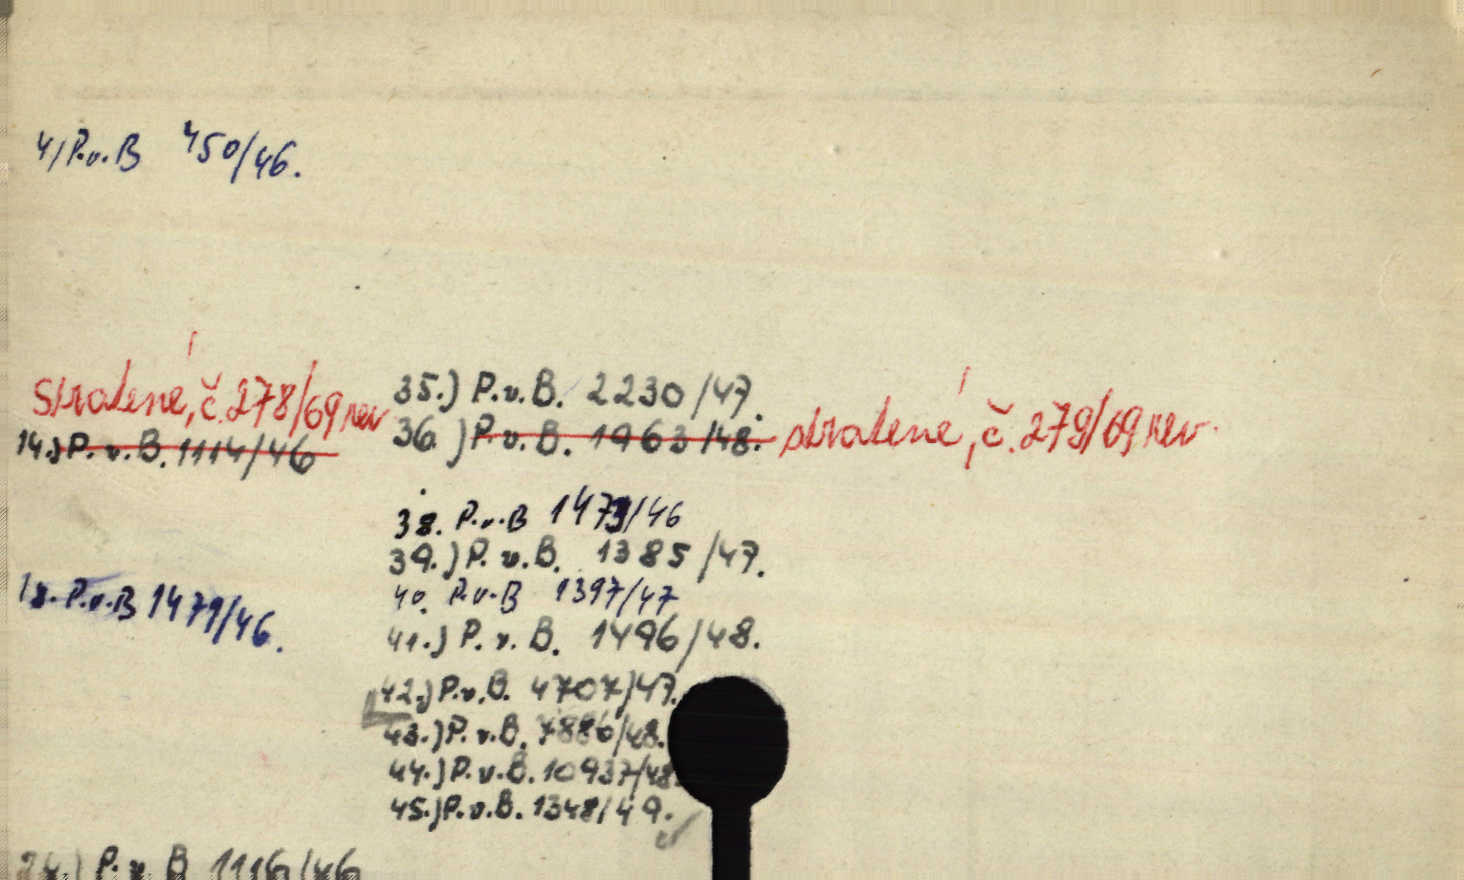 4/ P.v.B 450/46.
Stratené, č. 278/69 rev
14.) P.v.B. 1114/46
18. P.v.B 1479/46.
24.) P.v.B 1116/46
35.) P.v.B. 2230/47.
36.) P.v.B. 1963/48. stratené, č. 279/69 rev.
38. P.v.B 1479/46
39.) P.v.B. 1385/47.
40. P.v.B 1397/47
41.) P.v.B. 1496/48.
42.) P.v.B. 4707/47.
43.) P.v.B. 7886/48.
44.) P.v.B. 10937/48.
45.) P.v.B. 1348/49.